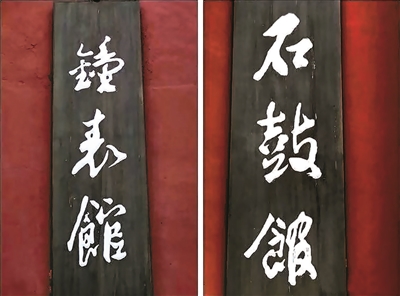 鐘表館
石鼓館